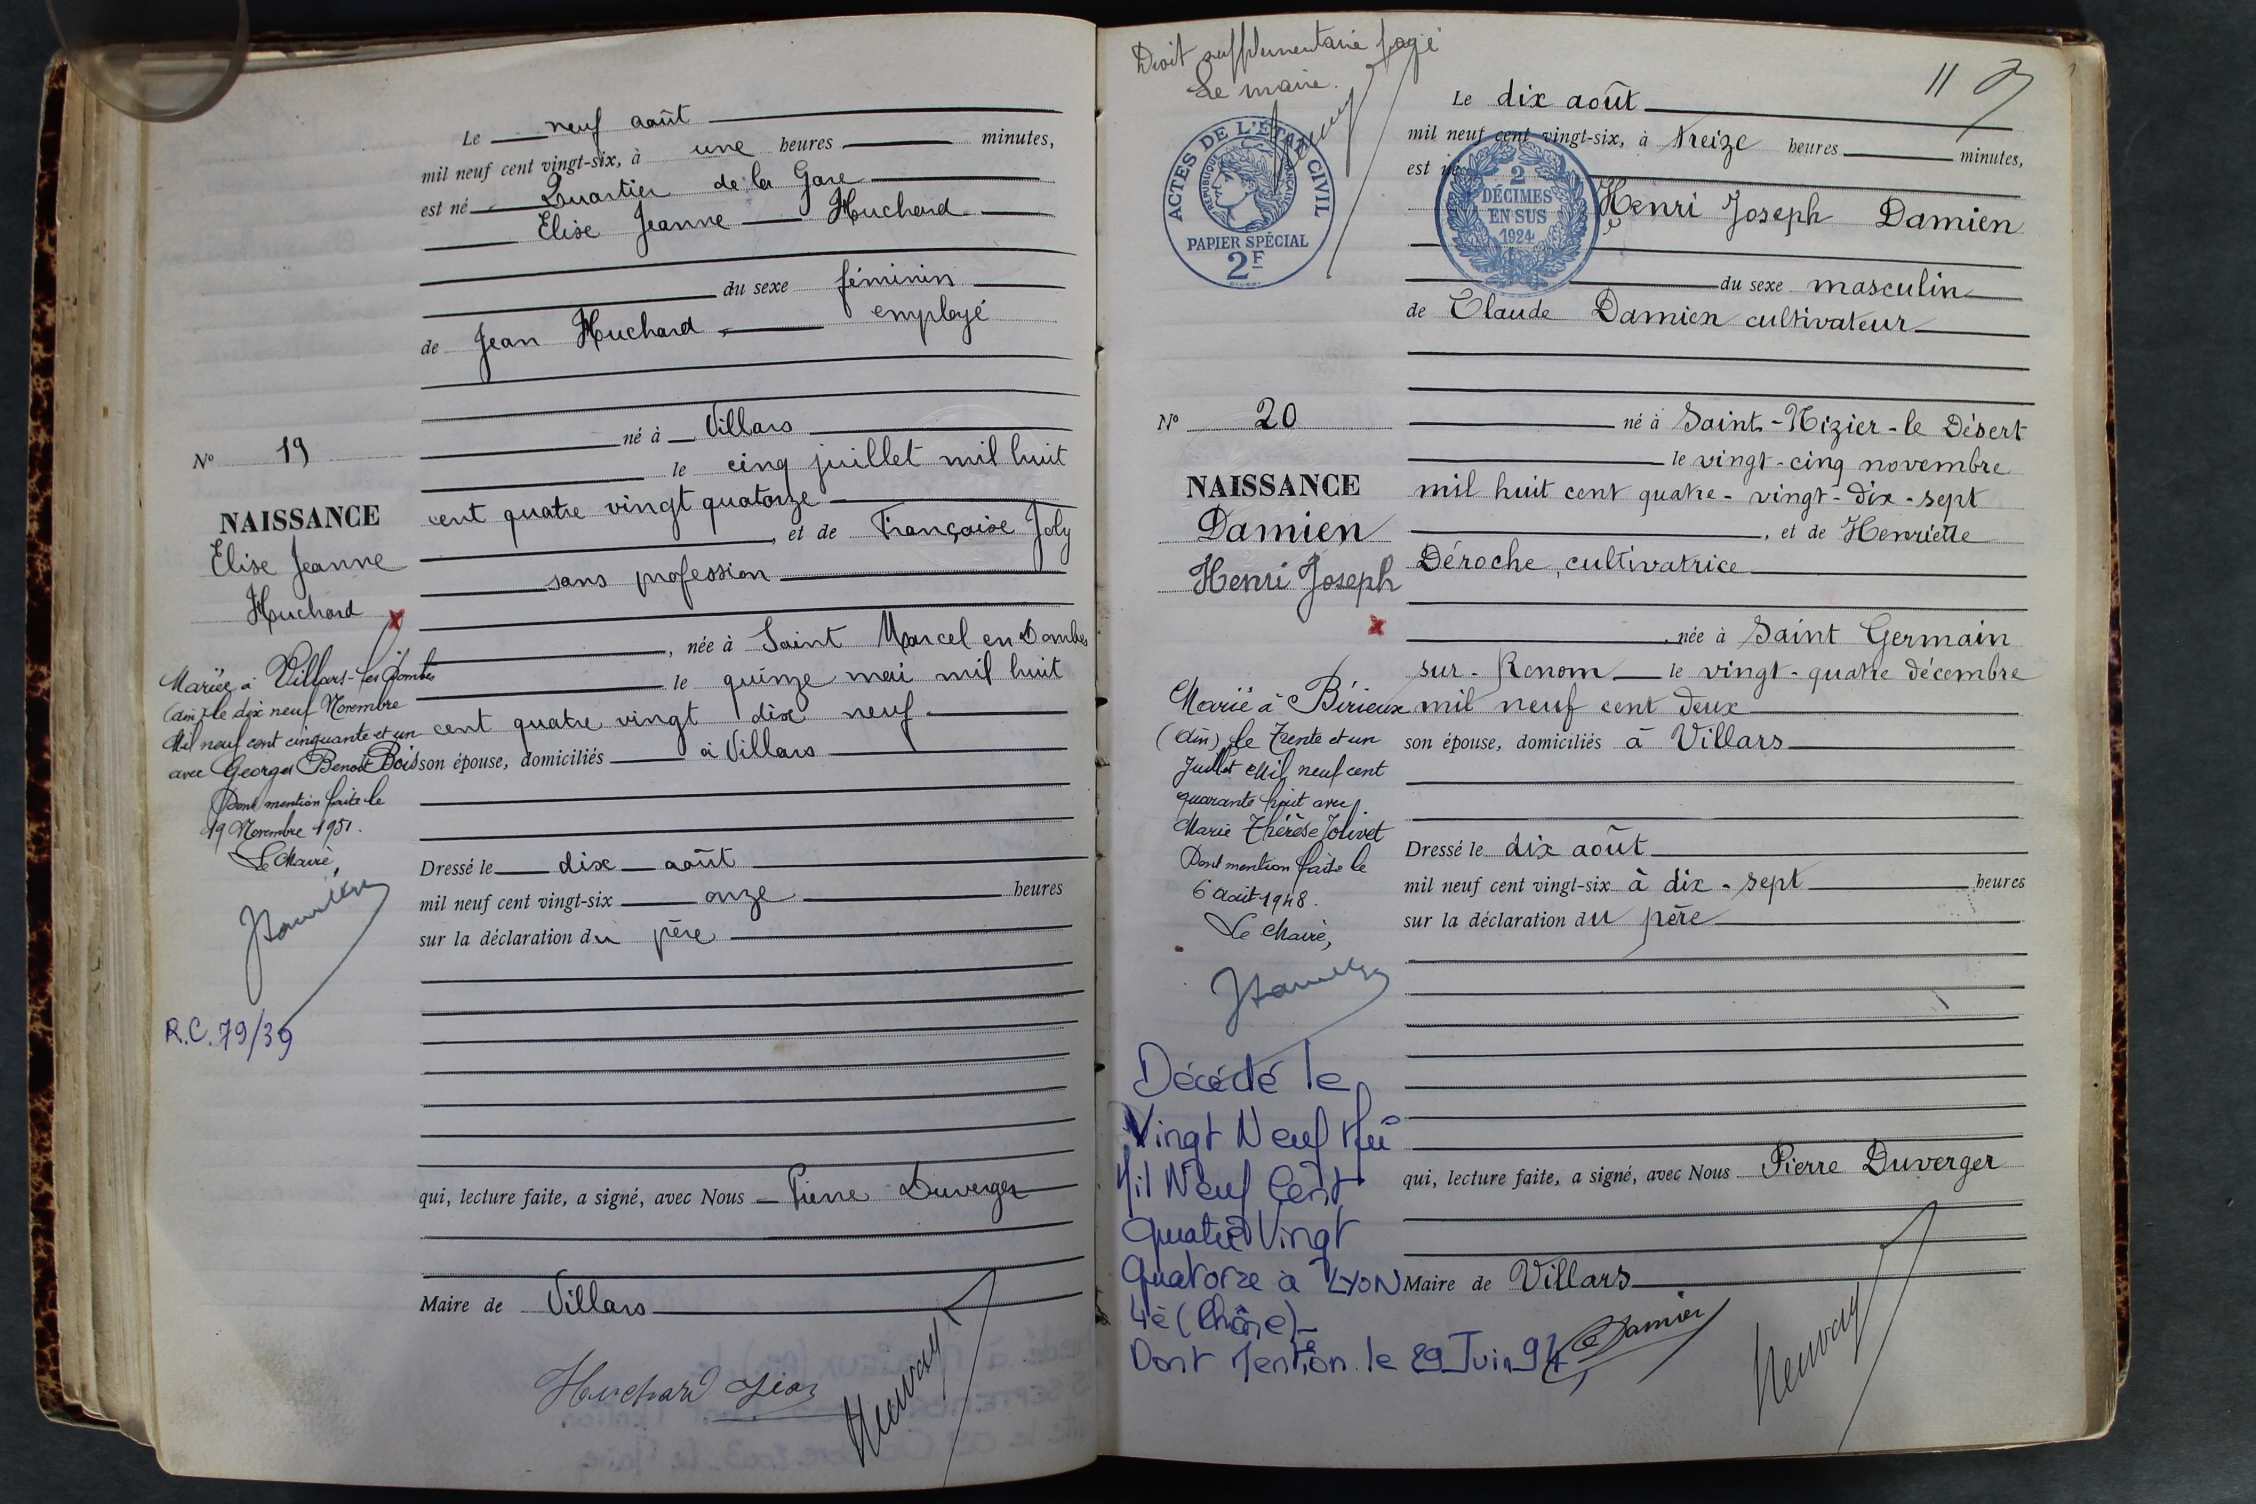 Le neuf août
mil neuf cent vingt-six, à une heures minutes,
est né Quartier de la Gare
Elise Jeanne Huchard
du sexe féminin
de Jean Huchard employé
né à Villars
le cinq juillet mil huit
cent quatre vingt quatorze
, et de Françoise Joly
sans profession
, née à Saint Marcel en Dombes
le quinze mai mil huit
cent quatre vingt dix neuf
son épouse, domiciliés à Villars
Dressé le dix août
mil neuf cent vingt-six onze heures
sur la déclaration du père
qui, lecture faite, a signé, avec Nous Pierre Duverger
Maire de Villars
Huchard Jean
N° 19
NAISSANCE
Elise Jeanne
Huchard
Mariée à Villars-les Dombes
(ain) le dix neuf Novembre
Mil neuf cent cinquante et un
avec Georges Benoit Bois
Dont mention faite le
19 Novembre 1951.
Le Maire,
R.C. 79/39
Droit supplementaire payé
Le maire.
ACTES DE L'ÉTAT CIVIL
RÉPUBLIQUE FRANÇAISE
PAPIER SPÉCIAL
2F
2
DÉCIMES
EN SUS
1924
11
Le dix août
mil neuf cent vingt-six, à treize heures minutes,
est né
Henri Joseph Damien
du sexe masculin
de Claude Damien cultivateur
né à Saint-Nizier-le Désert
le vingt-cinq novembre
mil huit cent quatre-vingt-dix-sept
, et de Henriette
Déroche, cultivatrice
, née à Saint Germain
sur-Renom le vingt-quatre décembre
mil neuf cent deux
son épouse, domiciliés à Villars
Dressé le dix août
mil neuf cent vingt-six à dix-sept heures
sur la déclaration du père
qui, lecture faite, a signé, avec Nous Pierre Duverger
Maire de Villars
Damien
N° 20
NAISSANCE
Damien
Henri Joseph
Marié à Birieux
(ain) le Trente et un
Juillet Mil neuf cent
quarante huit avec
Marie Thérèse Jolivet
Dont mention faite le
6 Août 1948.
Le Maire,
Décédé le
Vingt Neuf
Mil Neuf Cent
Quatre Vingt
Quatorze à LYON
4è (Rhône)
Dont Mention le 29 Juin 94